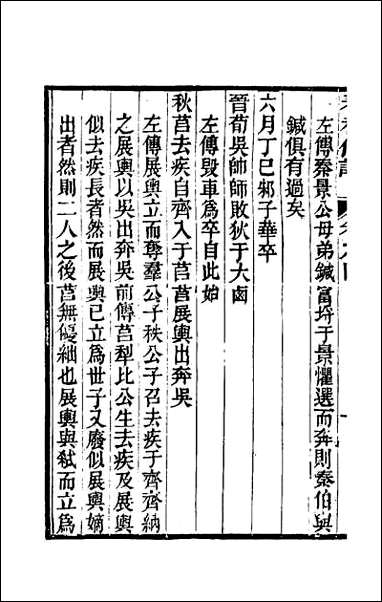 左傳秦景公母弟鍼富埒于景懼選而奔則秦伯與
鍼俱有過矣
六月丁巳邾子華卒
晉荀吳帥師敗狄于大鹵
左傳毀車爲卒自此始
秋莒去疾自齊入于莒莒展輿出奔吳
左傳展輿立而奪羣公子秩公子召去疾于齊齊納
之展輿以吳出奔吳前傳莒犁比公生去疾及展輿
似去疾長者然而展輿已立爲世子又廢似展輿嫡
出者然則二人之後莒無優絀也展輿與弑而立爲